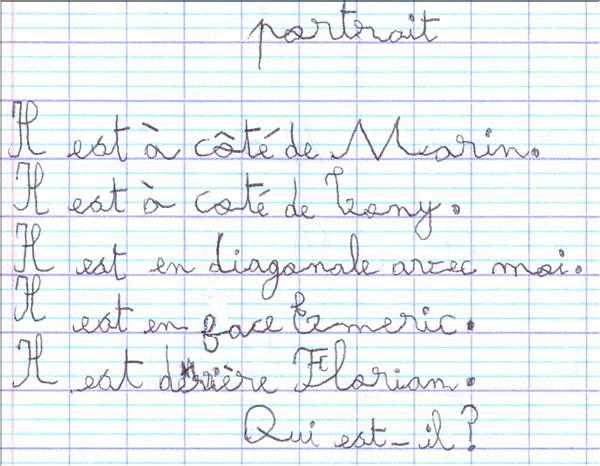 portrait
Il est à côté de Marin.
Il est à coté de Tony.
Il est en diagonale avec moi.
Il est en face Emeric.
Il est derrière Florian.
Qui est-il ?